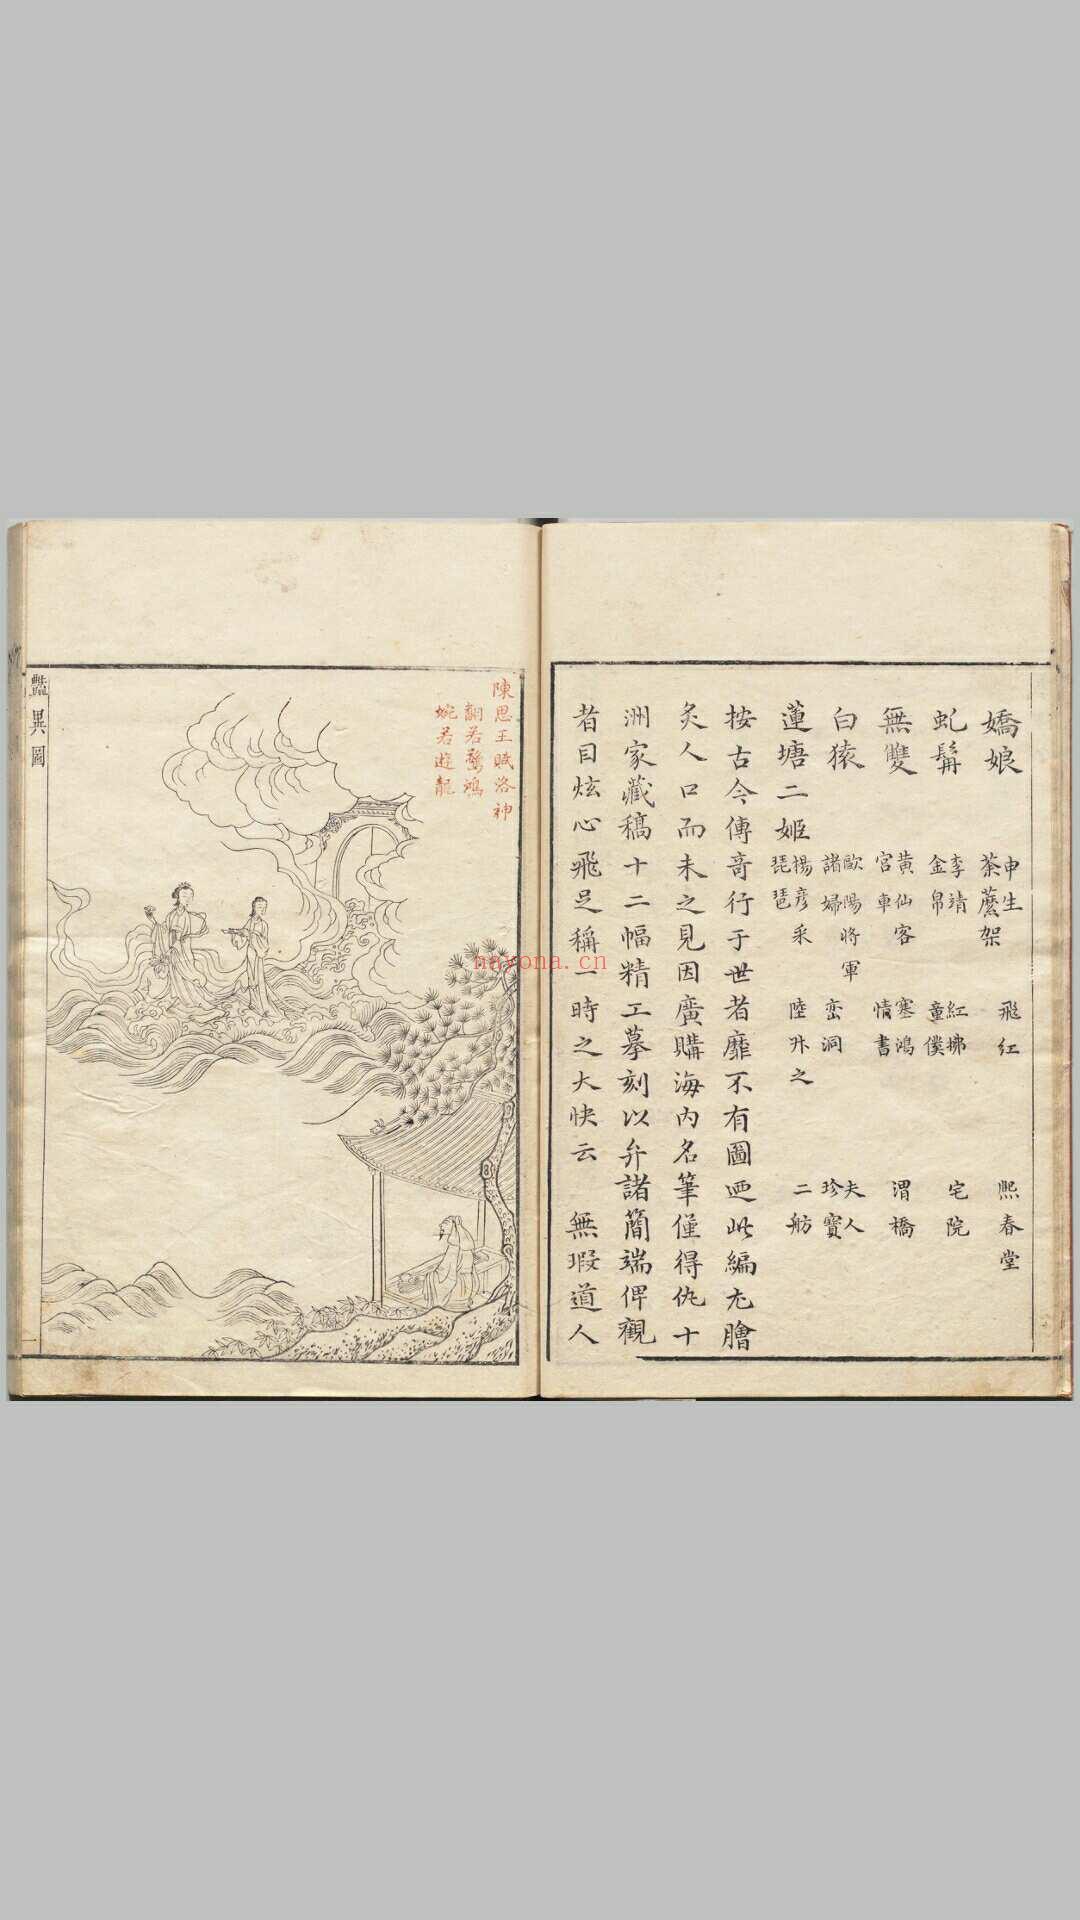 嬌娘 申生 飛紅 熙春堂
荼蘼架
虬髯 李靖 紅拂 宅院
金帛 童僕
無雙 黃仙客 塞鴻 渭橋
宮車 情書
白猿 歐陽將軍 夫人
諸婦 窋洞 珍寶
蓮塘二姬 楊彥采 陸升之 二舫
琵琶
按古今傳奇行于世者靡不有圖迺此編尤膾
炙人口而未之見因廣購海內名筆僅得仇十
洲家藏稿十二幅精工摹刻以弁諸簡端俾觀
者目炫心飛足稱一時之大快云 無瑕道人
陳思王賦洛神
翩若驚鴻
婉若遊龍
豔異圖
nayona.cn